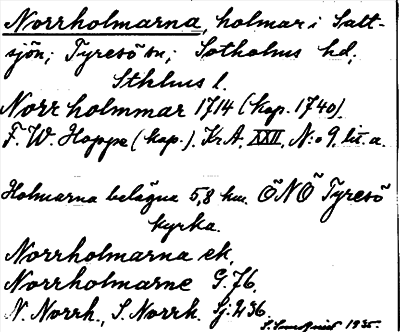 Norrholmarna, holmar i Salt-
sjön; Tyresö sn; Sotholms hd;
Sthlms l.
Norr holmmar 1714 (kop. 1740).
F. W. Hoppe (kop.). Kr.A. XXII, N:o 9, lit. a.
Holmarna belägna 5,8 km. ÖNÖ Tyresö
kyrka.
Norrholmarna ek.
Norrholmarne G. 76.
N. Norrh., S. Norrh. Sj. 236.
1935.